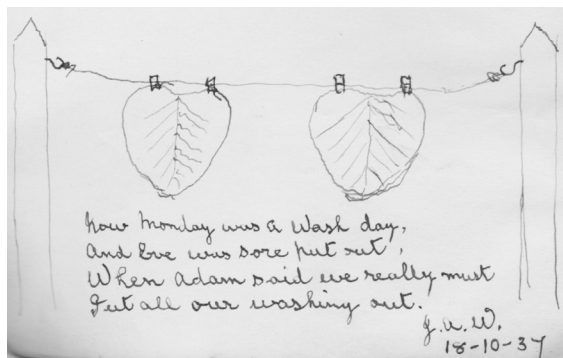 Now Monday was a Wash day,
And Eve was sore put out,
When Adam said we really must
Put all our washing out.
J.A.W.
18-10-37